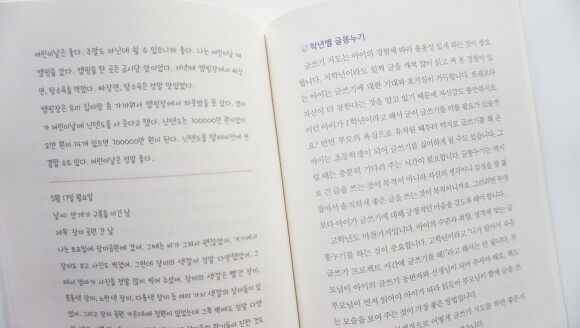 어린이날은 좋다. 주말도 아닌데 쉴 수 있으니까 좋다. 나는 어린이날 때
캠핑을 갔다. 캠핑을 한 곳은 금시당 앞이었다. 저녁에 캠핑장에서 짜장
면, 탕수육을 먹었다. 짜장면, 탕수육은 정말 맛있었다.
캠핑장은 우리 집이랑 좀 가까워서 캠핑장에서 하룻밤을 못 잤다. 엄마
가 어린이날에 닌텐도를 사 준다고 했다. 닌텐도는 700000만 원이었다.
오만 원이 14개 있으면 700000만 원이 된다. 닌텐도를 텔레비전에 연
결할 수도 있다. 어린이날은 정말 좋다.
5월 17일 월요일
날씨: 번개가 구름을 이긴 날
제목: 장미 공원 간 날
나는 토요일에 장미공원에 갔어. 그때는 비가 그쳐서 괜찮았어. 거기에서
장미도 보고 사진도 찍었어. 그런데 장미의 색깔이 정말 다양했었어. 그
래서 엄마가 사진을 정말 많이 찍어 주셨어. 장미의 색깔은 빨간 장미,
분홍색 장미, 노란색 장미, 다홍색 장미 등 여러 가지 색깔의 장미들이 있
었어. 그리고 장미 공원 가운데에 정원이 있었는데 그쪽 벽에도 정말 다양
학년별 글똥누기
글쓰기 지도는 아이의 경험에 따라 융통성 있게 하는 것이 중요
합니다. 저학년이라도 일찍 글을 깨쳐 많이 읽고 써 본 경험이 있
는 아이는 글쓰기에 대한 기대와 호기심이 가득합니다. 또래보다
자신이 더 잘한다는 것을 알고 있기 때문에 자신감도 충만하지요.
이런 아이가 1학년이라고 해서 굳이 글쓰기를 미룰 필요가 있을까
요? 반면 부모의 욕심으로 유치원 때부터 억지로 글쓰기를 해 온
아이는 초등학생이 되어 글쓰기를 싫어하게 될 수도 있습니다. 그
럴 때는 충분히 기다려 주는 시간이 필요합니다. 글똥누기는 억지
로 긴 글을 쓰는 것이 목적이 아니라 자신의 생각이나 감정을 똥 를
쓰는 것이 목적이니까요. 그러려면 무엇
보다 아이가 글쓰기에 대해 긍정적인 마음을 갖도록 해야 합니다.
고학년도 마찬가지입니다. 아이의 수준과 취향, 성격에 맞는 글
똥누기를 하는 것이 중요합니다. 고학년이라고 "니가 알아서 자유
글쓰기 프로젝트 시간에 글쓰기를 해!"라고 해서는 안 됩니다. 부
모님이 아이의 글쓰기 동반자와 선생님이 되어 주셔야 해요. 부
모님이 먼저 읽어야 아이가 따라 읽듯이 부모님이 함께 글을 쓰
는 모습을 보여 주는 것이 가장 좋은 방법입니다.
어떻게 글쓰기 지도를 하면 좋은지